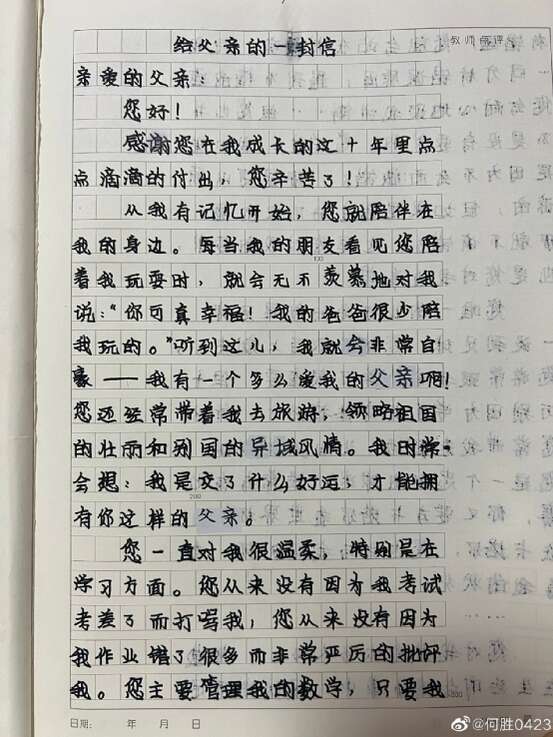 教师点评
给父亲的一封信
亲爱的父亲：
您好！
感谢您在我成长的这十年里点
点滴滴的付出，您辛苦了！
从我有记忆开始，您就陪伴在
我的身边。每当我的朋友看见您陪
100
着我玩耍时，就会无不羡慕地对我
说：“你可真幸福！我的爸爸很少陪
我玩的。”听到这儿，我就会非常自
豪——我有一个多么爱我的父亲啊！
您还经常带着我去旅游，领略祖国
的壮丽和别国的异域风情。我时常
会想：我是交了什么好运，才能拥
200
有你这样的父亲。
您一直对我很温柔，特别是在
学习方面。您从来没有因为我考试
考差了而打骂我，您从来没有因为
我作业错了很多而非常严厉的批评
我。您主要管理我的数学，只要我
300
日期： 年 月 日
@何胜0423